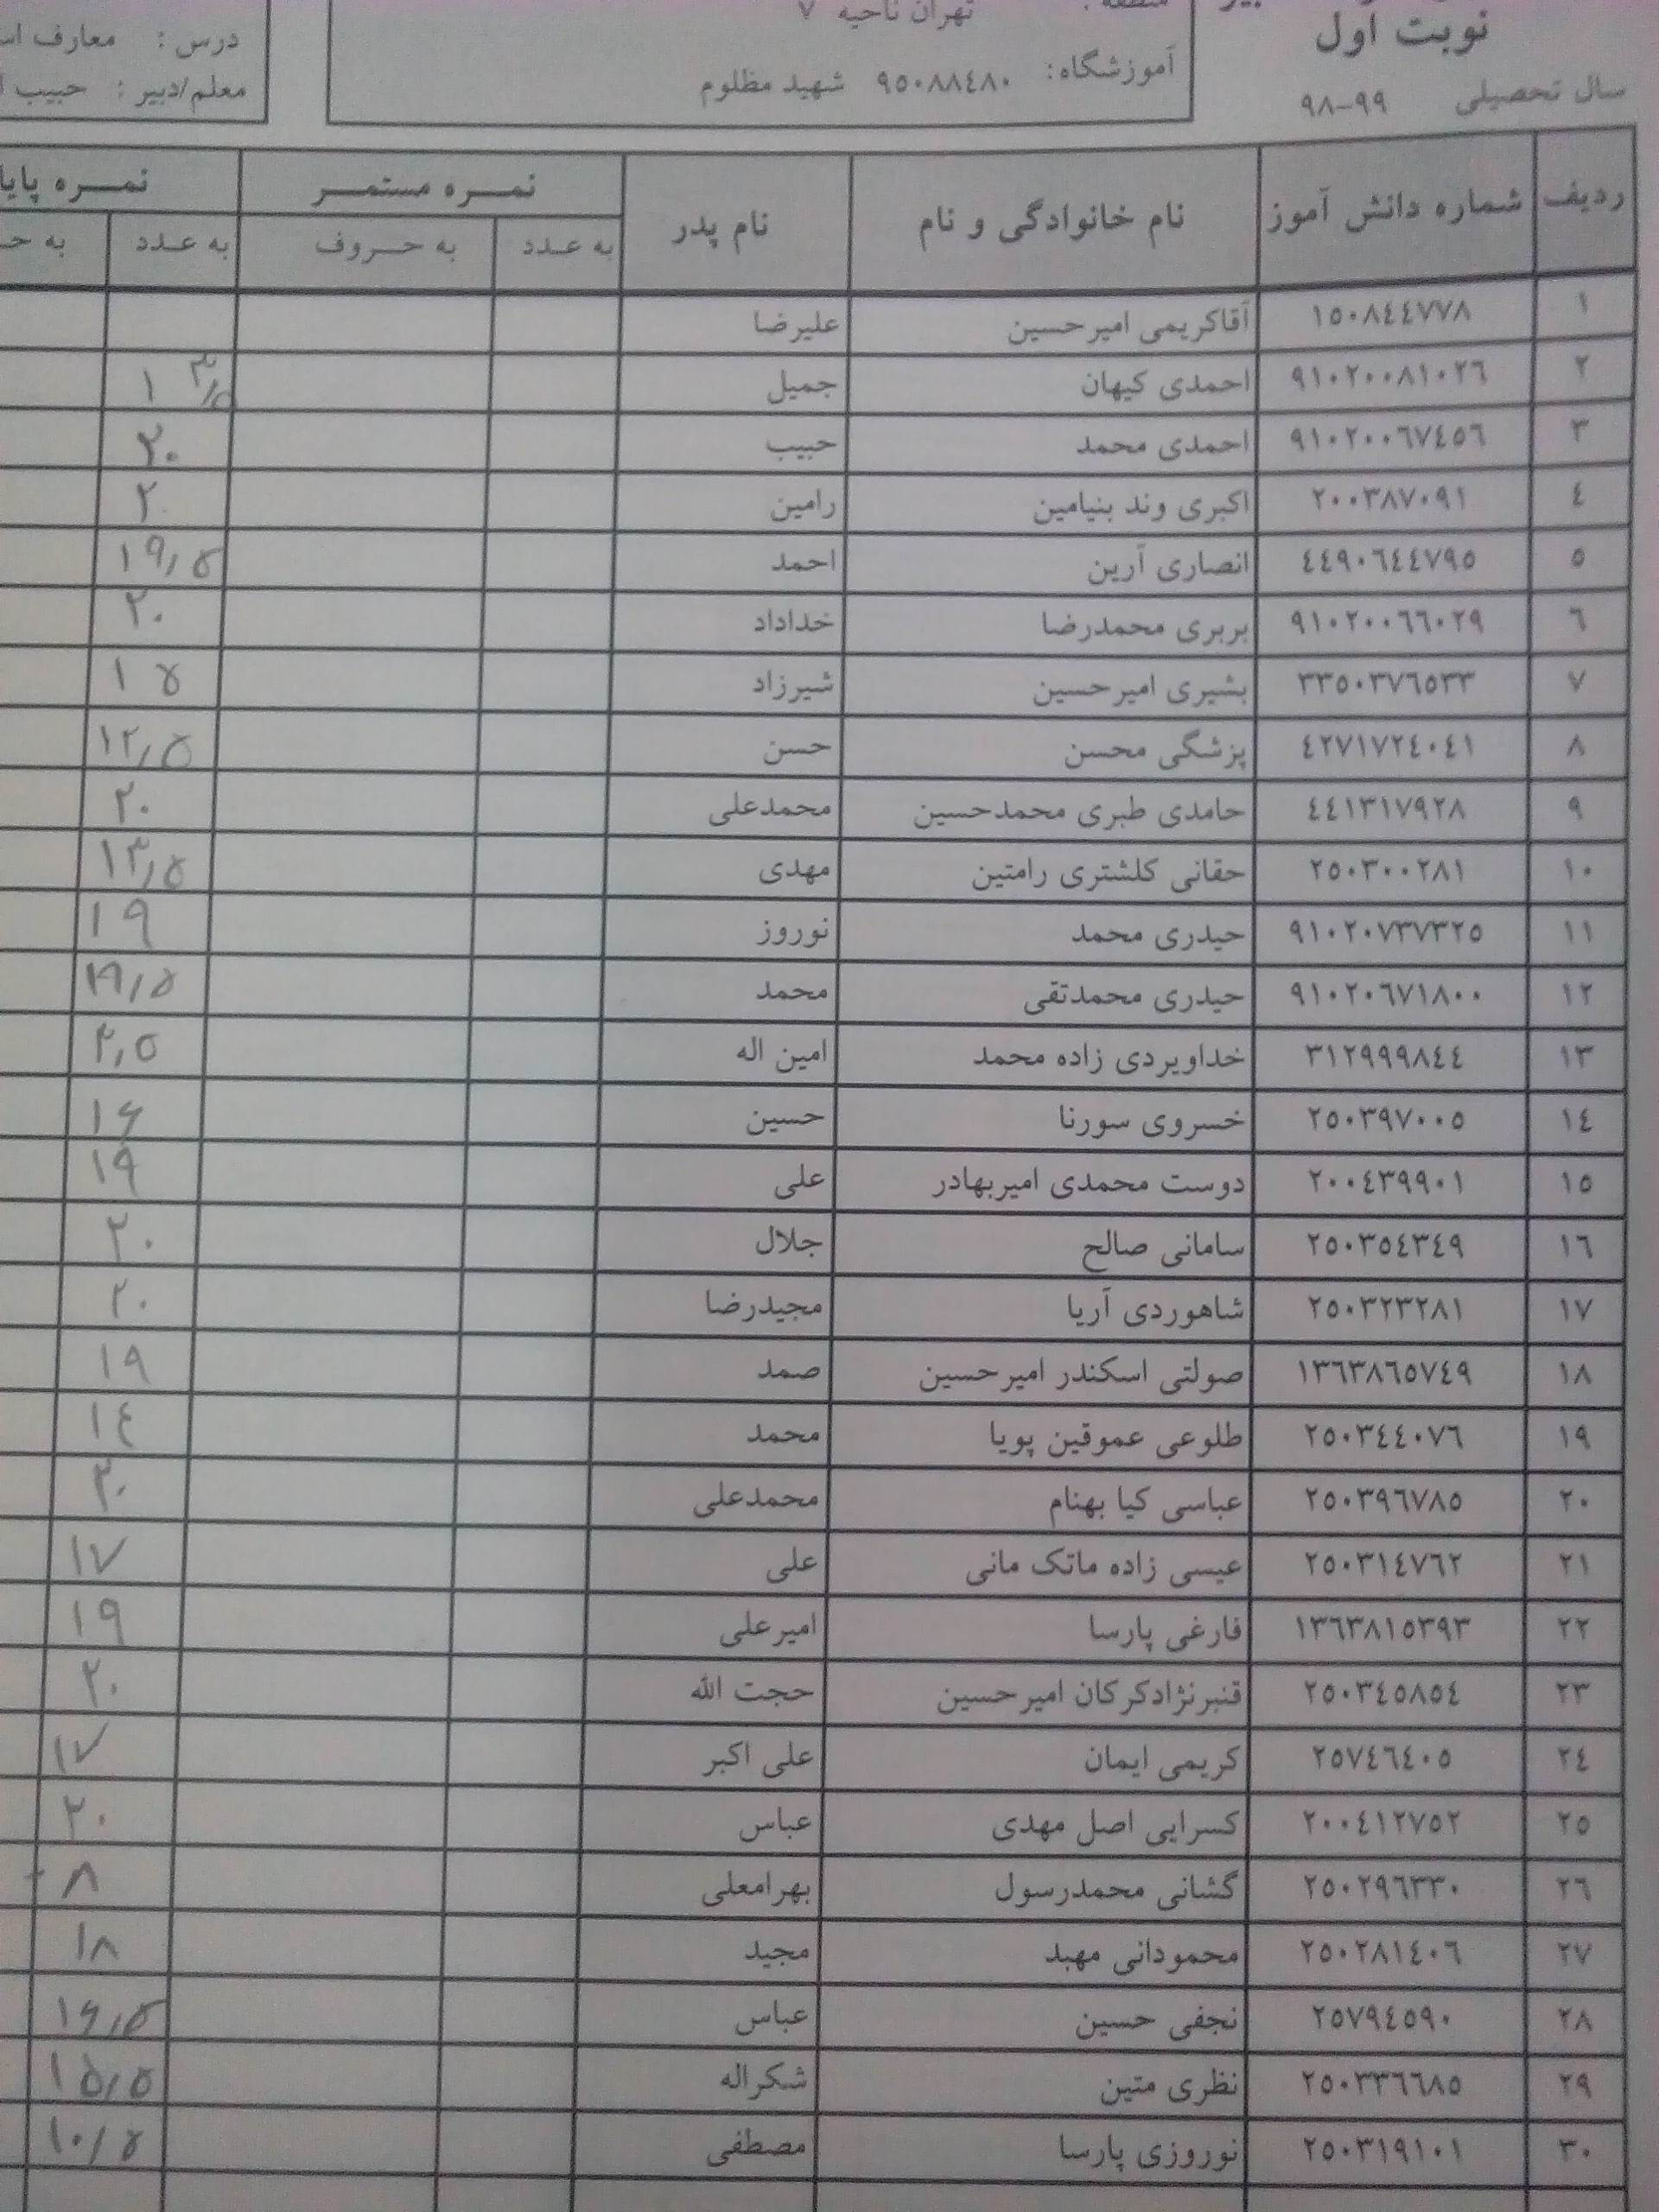 نوبت اول
سال تحصیلی ۹۸-۹۹
تهران ناحیه ۷
آموزشگاه: ۹۵۰۸۸٤۸۰ شهید مظلوم
درس : معارف
معلم/دبیر : حبیب
ردیف شماره دانش آموز نام خانوادگی و نام نام پدر نمره مستمر نمره
به عدد به حروف به عدد به
۱ ۱۵۰۸٤٤۷۷۸ آقاکریمی امیرحسین علیرضا
۲ ۹۱۰۲۰۰۸۱۰۲٦ احمدی کیهان جمیل
۳ ۹۱۰۲۰۰٦۷٤۵٦ احمدی محمد حبیب ۲۰
٤ ۲۰۰۳۸۷۰۹۱ اکبری وند بنیامین رامین ۲
۵ ٤٤۹۰٦٤٤۷۹۵ انصاری آرین احمد ۱۹/۵
٦ ۹۱۰۲۰۰٦٦۰۲۹ بربری محمدرضا خداداد ۲۰
۷ ۳۳۵۰۳۷٦۵۳۳ بشیری امیرحسین شیرزاد ۱۵
۸ ٤۲۷۱۷۲٤۰٤۱ پزشگی محسن حسن ۱۲/۵
۹ ٤٤۱۳۱۷۹۲۸ حامدی طبری محمدحسین محمدعلی ۲۰
۱۰ ۲۵۰۳۰۰۲۸۱ حقانی کلشتری رامتین مهدی ۱۳/۵
۱۱ ۹۱۰۲۰۷۳۷۳۲۵ حیدری محمد نوروز ۱۹
۱۲ ۹۱۰۲۰٦۷۱۸۰۰ حیدری محمدتقی محمد
۱۳ ۳۱۲۹۹۹۸٤٤ خداویردی زاده محمد امین اله
۱٤ ۲۵۰۳۹۷۰۰۵ خسروی سورنا حسین ۱۶
۱۵ ۲۰۰٤۳۹۹۰۱ دوست محمدی امیربهادر علی ۱۹
۱٦ ۲۵۰۳۵٤۳٤۹ سامانی صالح جلال ۲۰
۱۷ ۲۵۰۳۲۳۲۸۱ شاهوردی آریا مجیدرضا ۲۰
۱۸ ۱۳٦۳۸٦۵۷٤۹ صولتی اسکندر امیرحسین صمد ۱۹
۱۹ ۲۵۰۳٤٤۰۷٦ طلوعی عموقین پویا محمد ۱٤
۲۰ ۲۵۰۳۹٦۷۸۵ عباسی کیا بهنام محمدعلی ۲۰
۲۱ ۲۵۰۳۱٤۷٦۲ عیسی زاده ماتک مانی علی ۱۷
۲۲ ۱۳٦۳۸۱۵۳۹۳ فارغی پارسا امیرعلی ۱۹
۲۳ ۲۵۰۳٤۵۸۵٤ قنبرنژادکرکان امیرحسین حجت الله ۲۰
۲٤ ۲۵۷٤٦٤۰۵ کریمی ایمان علی اکبر ۱۷
۲۵ ۲۰۰٤۱۲۷۵۲ کسرایی اصل مهدی عباس ۲۰
۲٦ ۲۵۰۲۹٦۳۳۰ گشانی محمدرسول بهرامعلی ۸
۲۷ ۲۵۰۲۸۱٤۰٦ محمودانی مهبد مجید ۱۸
۲۸ ۲۵۷۹٤۵۹۰ نجفی حسین عباس ۱۶/۵
۲۹ ۲۵۰۳۳٦٦۸۵ نظری متین شکراله ۱۵/۵
۳۰ ۲۵۰۳۱۹۱۰۱ نوروزی پارسا مصطفی ۱۰/۵